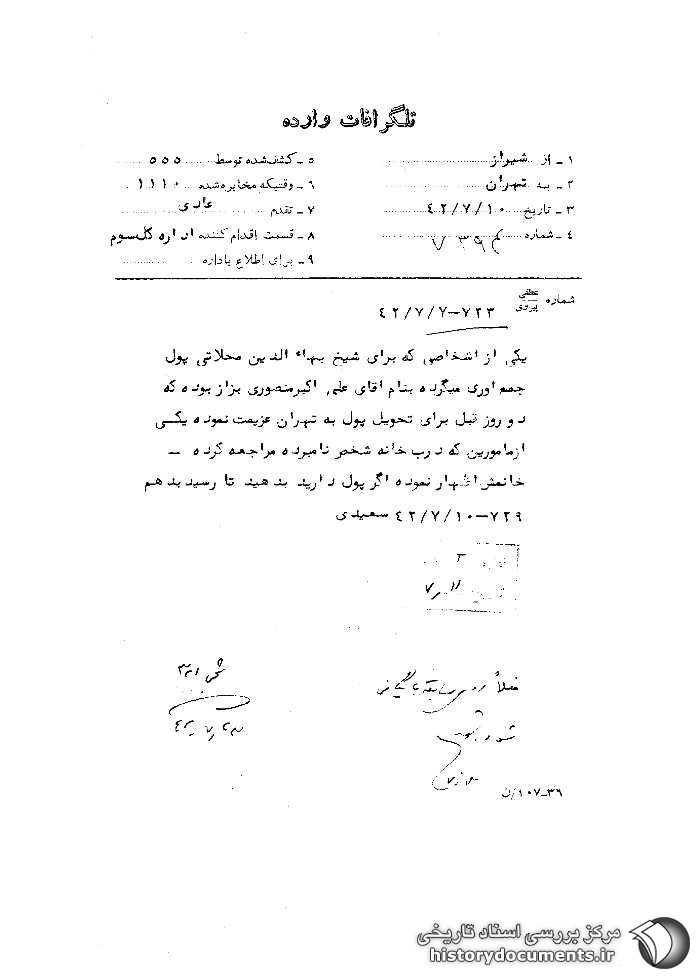 تلگرافات وارده
۱ـ از شیراز
۲ـ به تهران
۳ـ تاریخ ۴۲/۷/۱۰
۴ـ شماره
۵ـ کشف‌شده توسط ۵۵۵
۶ـ وقتیکه مخابره‌شده ۱۱۱۰
۷ـ تقدم عادی
۸ـ قسمت اقدام کننده اداره کل‌سوم
۹ـ برای اطلاع باداره
شماره عطفی پیروی ۷۲۳-۴۲/۷/۷
یکی از اشخاصی که برای شیخ بهاء الدین محلاتی پول
جمع اوری میکرده بنام اقای علی اکبرمنصوری بزاز بوده که
دو روز قبل برای تحویل پول به تهران عزیمت نموده یکی
ازمامورین که درب خانه شخص نامبرده مراجعه کرده ـ
خانمش اظهار نموده اگر پول دارید بدهید تا رسید بدهم
۷۲۹-۴۲/۷/۱۰ سعیدی
۳۶-۱۰۷/ن
مرکز بررسی اسناد تاریخی
historydocuments.ir